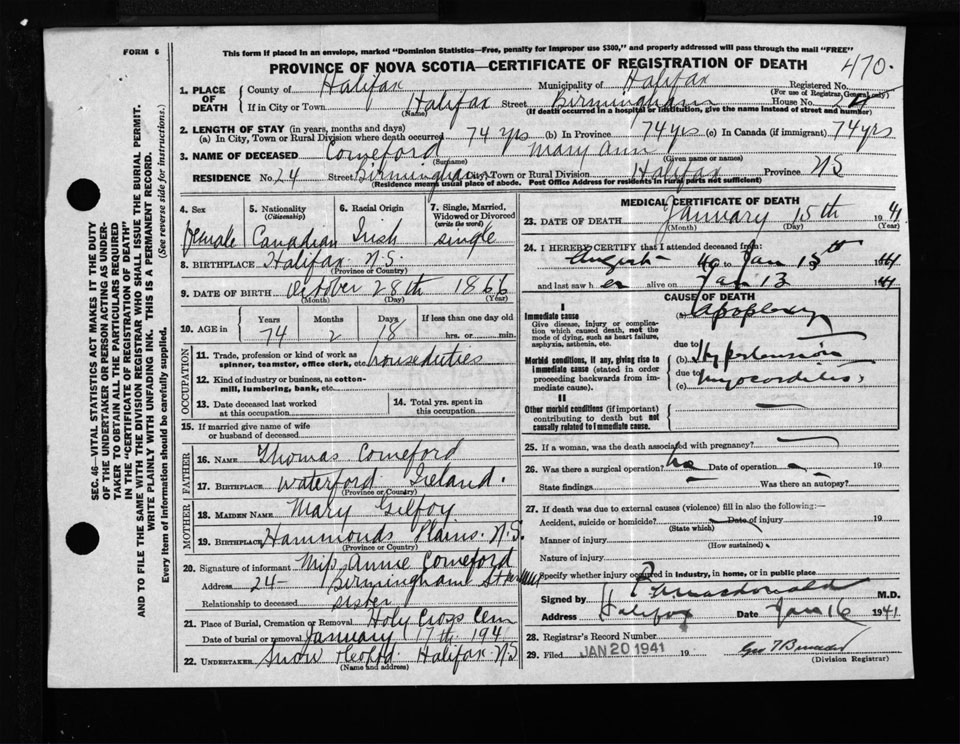 FORM 6
This form if placed in an envelope, marked "Dominion Statistics—Free, penalty for improper use $300," and properly addressed will pass through the mail "FREE"
PROVINCE OF NOVA SCOTIA—CERTIFICATE OF REGISTRATION OF DEATH
470.
1. PLACE OF DEATH
County of Halifax Municipality of Halifax Registered No.
(For use of Registrar General only)
If in City or Town Halifax Street Birmingham House No. 24
(Name) (If death occurred in a hospital or institution, give the name instead of street and number)
2. LENGTH OF STAY (in years, months and days)
(a) In City, Town or Rural Division where death occurred 74 yrs (b) In Province 74 yrs (c) In Canada (if immigrant) 74 yrs
3. NAME OF DECEASED Comeford Mary Ann
(Surname) (Given name or names)
RESIDENCE No. 24 Street Birmingham City, Town or Rural Division Halifax Province N S
(Residence means usual place of abode. Post Office Address for residents in rural parts not sufficient)
4. Sex female
5. Nationality (Citizenship) Canadian
6. Racial Origin Irish
7. Single, Married, Widowed or Divorced (write the word) single
8. BIRTHPLACE Halifax N.S.
(Province or Country)
9. DATE OF BIRTH October 28th 1866
(Month) (Day) (Year)
10. AGE in Years 74 Months 2 Days 18 If less than one day old hrs. or min.
OCCUPATION
11. Trade, profession or kind of work as spinner, teamster, office clerk, etc. house duties
12. Kind of industry or business, as cotton-mill, lumbering, bank, etc.
13. Date deceased last worked at this occupation
14. Total yrs. spent in this occupation
15. If married give name of wife or husband of deceased
FATHER
16. NAME Thomas Comeford
17. BIRTHPLACE Waterford Ireland.
(Province or Country)
MOTHER
18. MAIDEN NAME Mary Gilfoy
19. BIRTHPLACE Hammonds Plains. N.S.
(Province or Country)
20. Signature of informant Miss Annie Comeford
Address 24 - Birmingham St
Relationship to deceased sister
21. Place of Burial, Cremation or Removal Holy Cross Cem
Date of burial or removal January 17th 194
22. UNDERTAKER Snow & Co Ltd. Halifax N.S
(Name and address)
MEDICAL CERTIFICATE OF DEATH
23. DATE OF DEATH January 15th 1941
(Month) (Day) (Year)
24. I HEREBY CERTIFY that I attended deceased from:
August 40 to Jan 15th 1941
and last saw her alive on Jan 13 1941
CAUSE OF DEATH
I
Immediate cause
Give disease, injury or complication which caused death, not the mode of dying, such as heart failure, asphyxia, asthenia, etc.
(a) Apoplexy
due to
Morbid conditions, if any, giving rise to immediate cause (stated in order proceeding backwards from immediate cause).
(b) Hypertension
due to
(c) Myocarditis
II
Other morbid conditions (if important) contributing to death but not causally related to immediate cause.
25. If a woman, was the death associated with pregnancy?
26. Was there a surgical operation? no Date of operation 19
State findings Was there an autopsy?
27. If death was due to external causes (violence) fill in also the following:—
Accident, suicide or homicide? Date of injury 19
(State which)
Manner of injury
(How sustained)
Nature of injury
Specify whether injury occurred in industry, in home, or in public place
Signed by Macdonald M.D.
Address Halifax Date Jan 16 1941
28. Registrar's Record Number
29. Filed JAN 20 1941 19
(Division Registrar)
SEC. 46—VITAL STATISTICS ACT MAKES IT THE DUTY
OF THE UNDERTAKER OR PERSON ACTING AS UNDER-
TAKER TO OBTAIN ALL THE PARTICULARS REQUIRED
IN THE "CERTIFICATE OF REGISTRATION OF DEATH"
AND TO FILE THE SAME WITH THE DIVISION REGISTRAR WHO SHALL ISSUE THE BURIAL PERMIT.
WRITE PLAINLY WITH UNFADING INK. THIS IS A PERMANENT RECORD.
Every item of information should be carefully supplied. (See reverse side for instructions.)